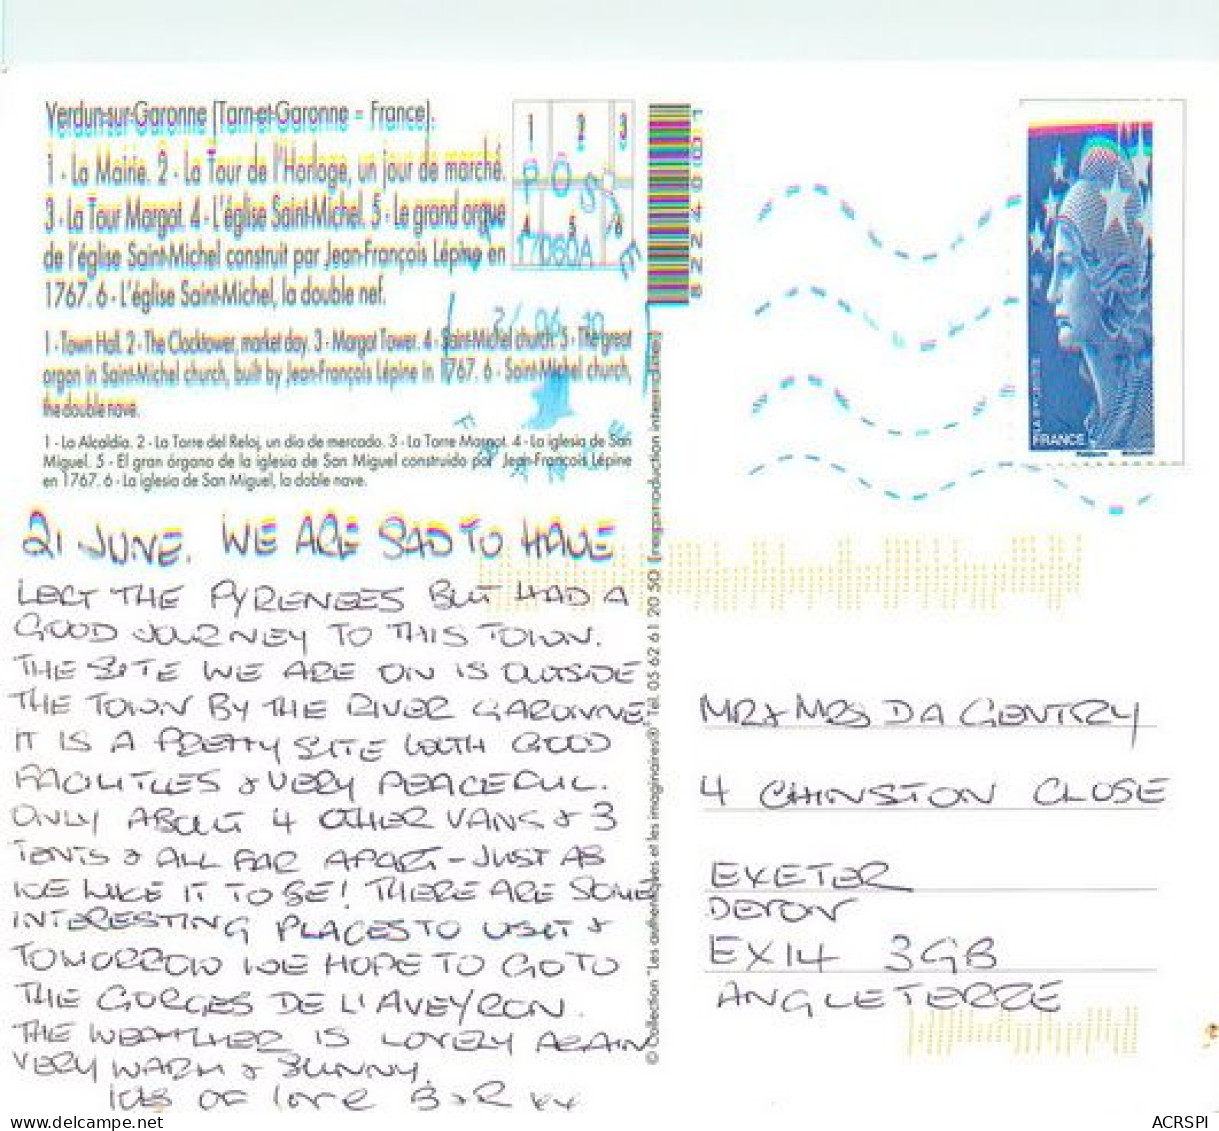 Verdun-sur-Garonne (Tarn-et-Garonne - France).
1 - La Mairie. 2 - La Tour de l'Horloge, un jour de marché.
3 - La Tour Margot. 4 - L'église Saint-Michel. 5 - Le grand orgue
de l'église Saint-Michel construit par Jean-François Lépine en
1767. 6 - L'église Saint-Michel, la double nef.
1 - Town Hall. 2 - The Clocktower, market day. 3 - Margot Tower. 4 - Saint-Michel church. 5 - The great
organ in Saint-Michel church, built by Jean-François Lépine in 1767. 6 - Saint-Michel church,
the double nave.
1 - La Alcaldia. 2 - La Torre del Reloj, un dia de mercado. 3 - La Torre Margot. 4 - La iglesia de San
Miguel. 5 - El gran órgano de la iglesia de San Miguel construido por Jean-François Lépine
en 1767. 6 - La iglesia de San Miguel, la doble nave.
1 2 3
4 5 6
POSTE
17060A
06 10
FRANCE
8224001
© Collection "Les authentiques et les imaginaires" Tél. 05 62 61 20 50 (reproduction interdite)
LA POSTE
FRANCE
21 JUNE. WE ARE SAD TO HAVE
LEFT THE PYRENEES BUT HAD A
GOOD JOURNEY TO THIS TOWN.
THE SITE WE ARE ON IS OUTSIDE
THE TOWN BY THE RIVER GARONNE.
IT IS A PRETTY SITE WITH GOOD
FACILITIES & VERY PEACEFUL.
ONLY ABOUT 4 OTHER VANS & 3
TENTS & ALL FAR APART - JUST AS
WE LIKE IT TO BE! THERE ARE SOME
INTERESTING PLACES TO VISIT &
TOMORROW WE HOPE TO GO TO
THE GORGES DE L'AVEYRON.
THE WEATHER IS LOVELY AGAIN
VERY WARM & SUNNY.
lots OF love B & R xx
MR & MRS D A GENTRY
4 CHINSTON CLOSE
EXETER
DEVON
EX14 3GB
ANGLETERRE
ACRSPI